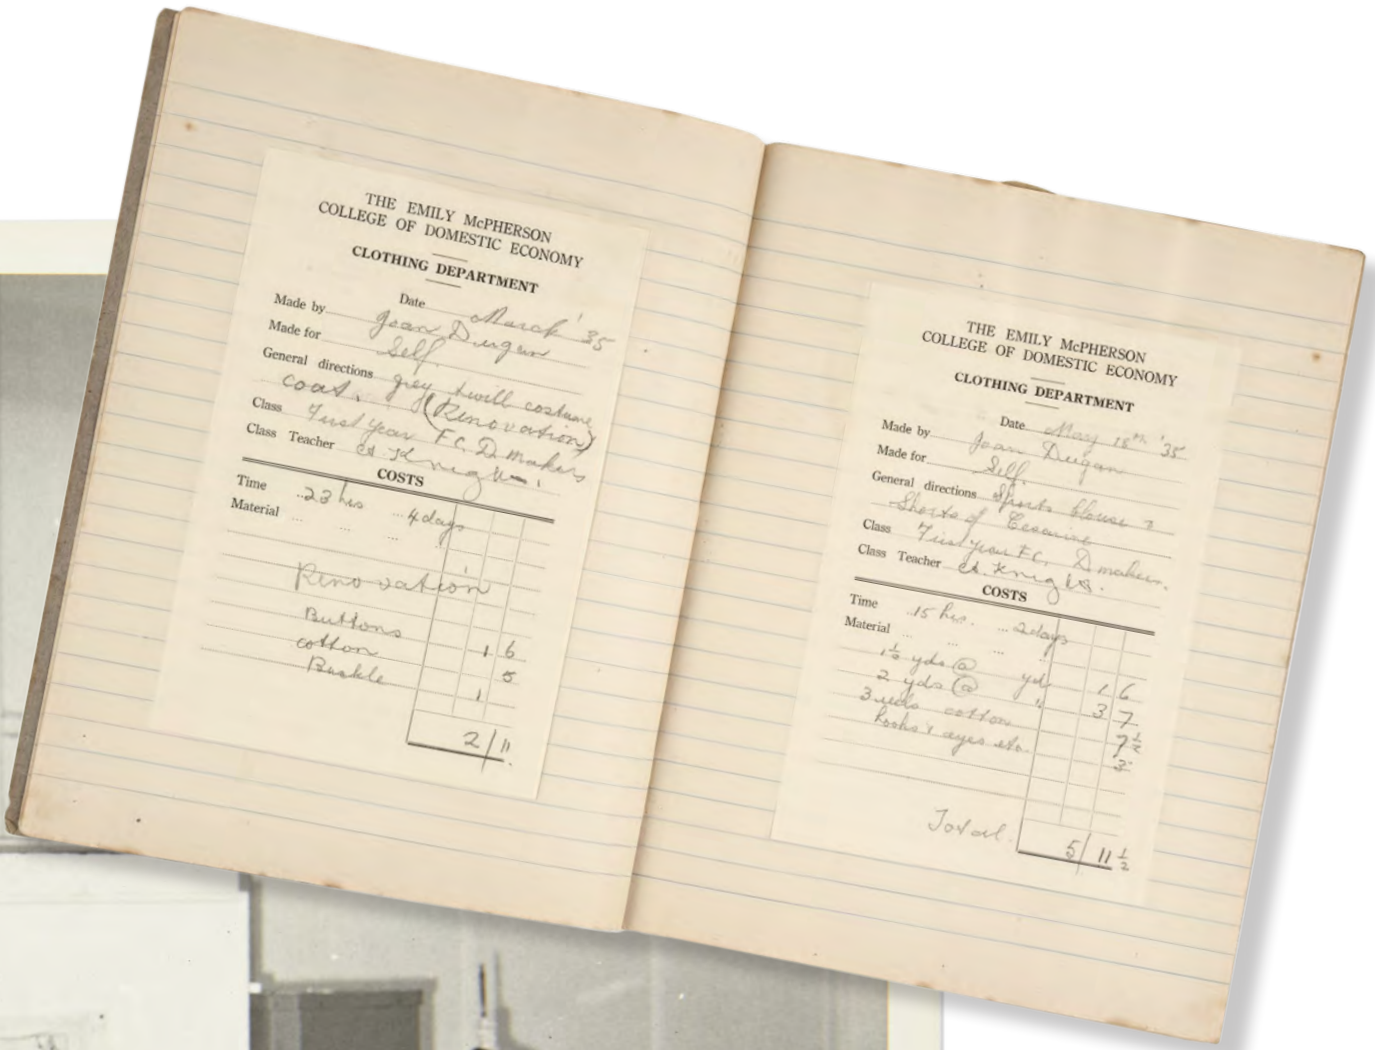 THE EMILY McPHERSON
COLLEGE OF DOMESTIC ECONOMY
CLOTHING DEPARTMENT
Date March '35
Made by Joan Dugan
Made for Self
General directions grey twill costume
coat. (Renovation)
Class First year F.C. D makers
Class Teacher A. Knight.
COSTS
Time ..23 hrs ... 4 days
Material ... ... ...
Renovation
Buttons 1 6
cotton 5
Buckle 1
2/11.
THE EMILY McPHERSON
COLLEGE OF DOMESTIC ECONOMY
CLOTHING DEPARTMENT
Date May 18th '35
Made by Joan Dugan
Made for Self
General directions Sports blouse &
Shorts of Cesarine
Class First year F.C. D makers.
Class Teacher A. Knight.
COSTS
Time ..15 hrs. ... 2 days
Material ... ... ..
1½ yds @ yd. 1 6
2 yds @ " 3 7
3 reels cotton 7½
hooks & eyes etc. 3
Total. 5/11½